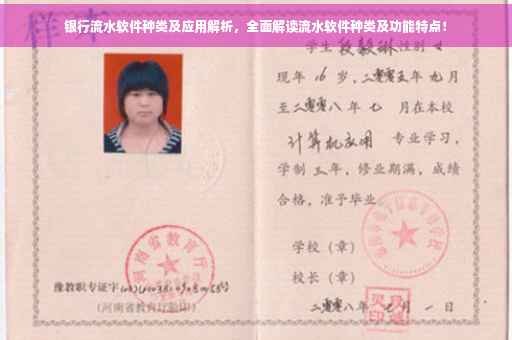 银行流水软件种类及应用解析，全面解读流水软件种类及功能特点！
样本
学生 段毅琳 性别 女
现年 16 岁，二零零五年 九月
至二零零八年 七 月在本校
计算机应用 专业学习，
学制 三年，修业期满，成绩
合格，准予毕业
学校（章）
校长（章）
二零零八年 七月 一日
河南省教育厅
豫教职专证字
（河南省教育厅验印）